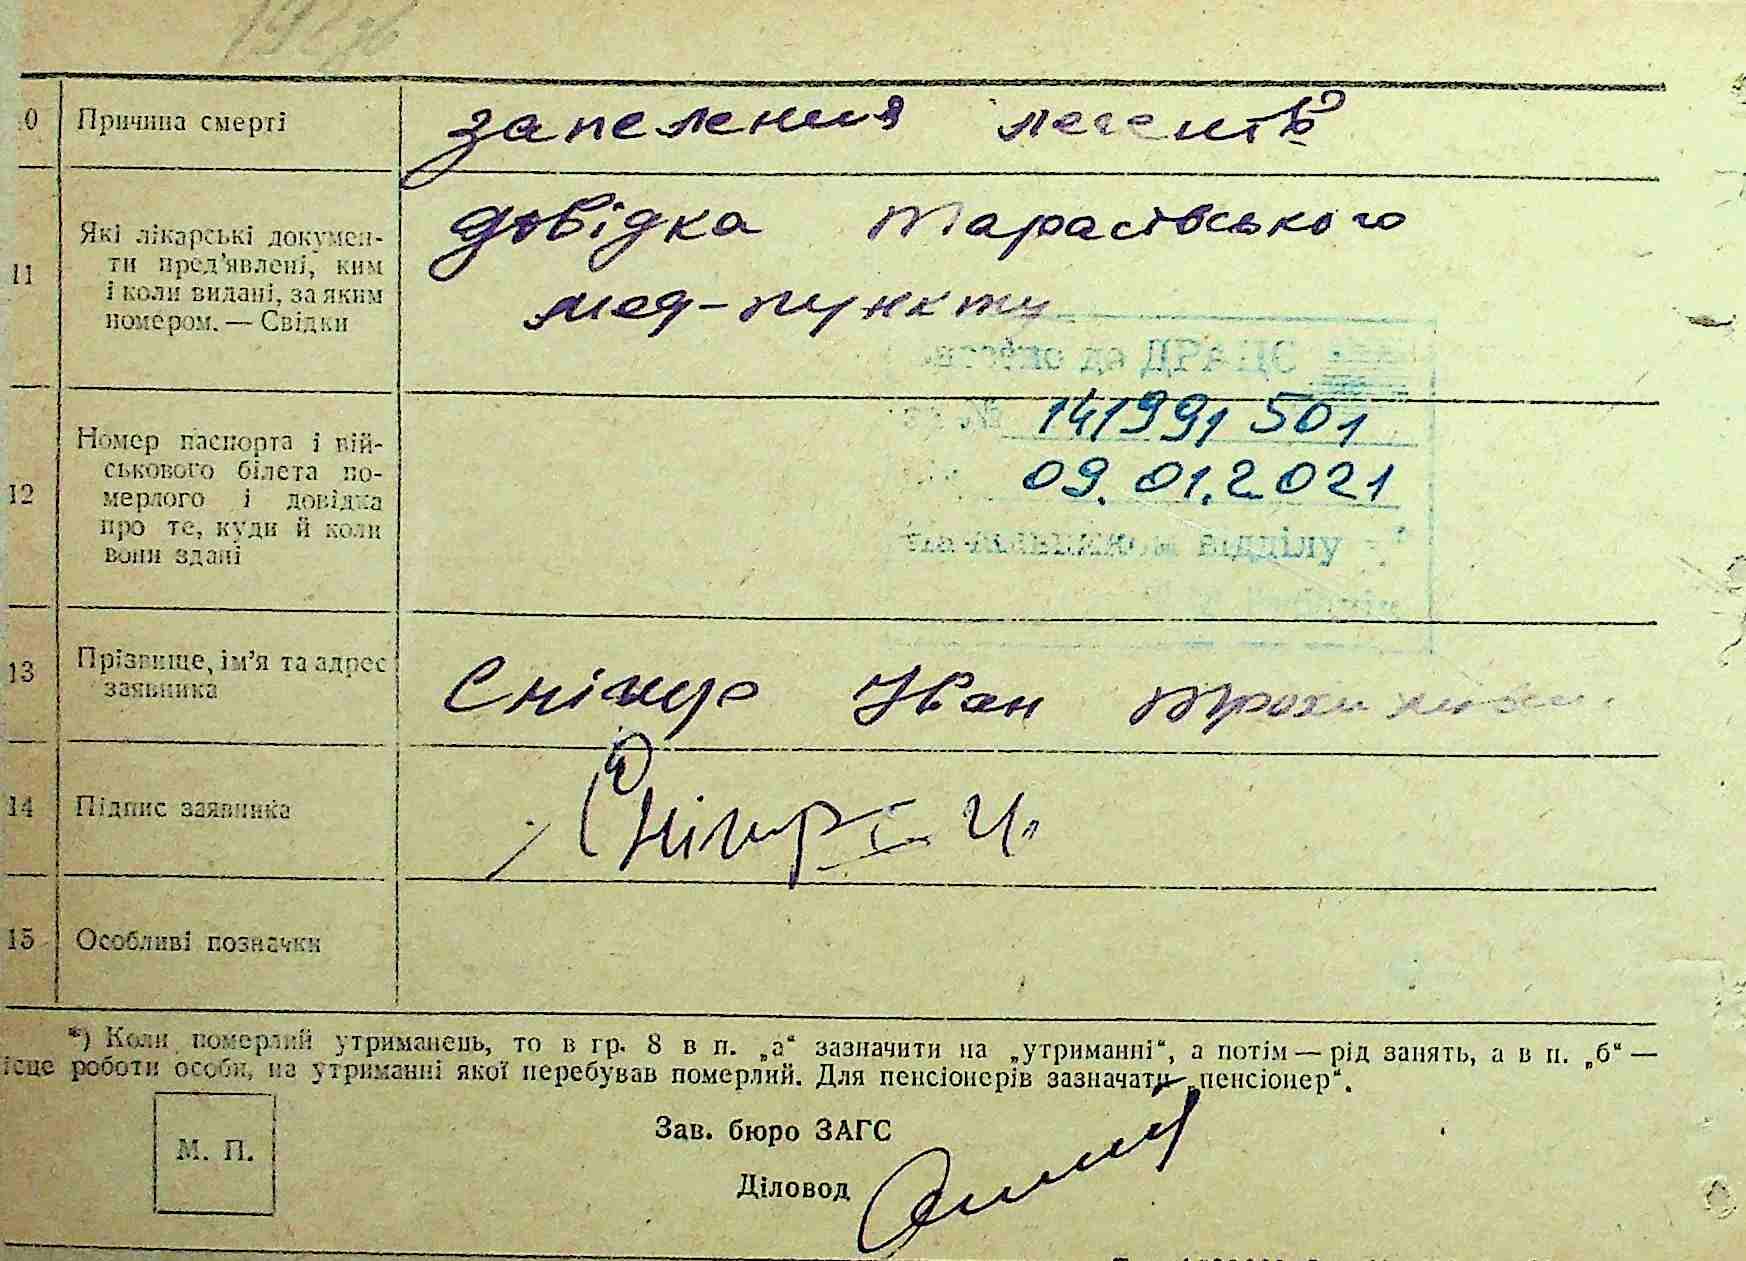 0 Причина смерті запелення легенів
11 Які лікарські докумен-
ти пред'явлені, ким
і коли видані, за яким
номером. — Свідки
довідка Тарасівського
мед-пункту
до ДРАЦС
12 Номер паспорта і вій-
ськового білета по-
мерлого і довідка
про те, куди й коли
вони здані
№ 141991501
09.01.2021
відділу
13 Прізвище, ім'я та адрес
заявника
Снігир Іван
14 Підпис заявника
Снігир І.
15 Особливі позначки
*) Коли померлий утриманець, то в гр. 8 в п. „а“ зазначити на „утриманні“, а потім — рід занять, а в п. „б“ —
ісце роботи особи, на утриманні якої перебував померлий. Для пенсіонерів зазначати „пенсіонер“.
М. П.
Зав. бюро ЗАГС
Діловод